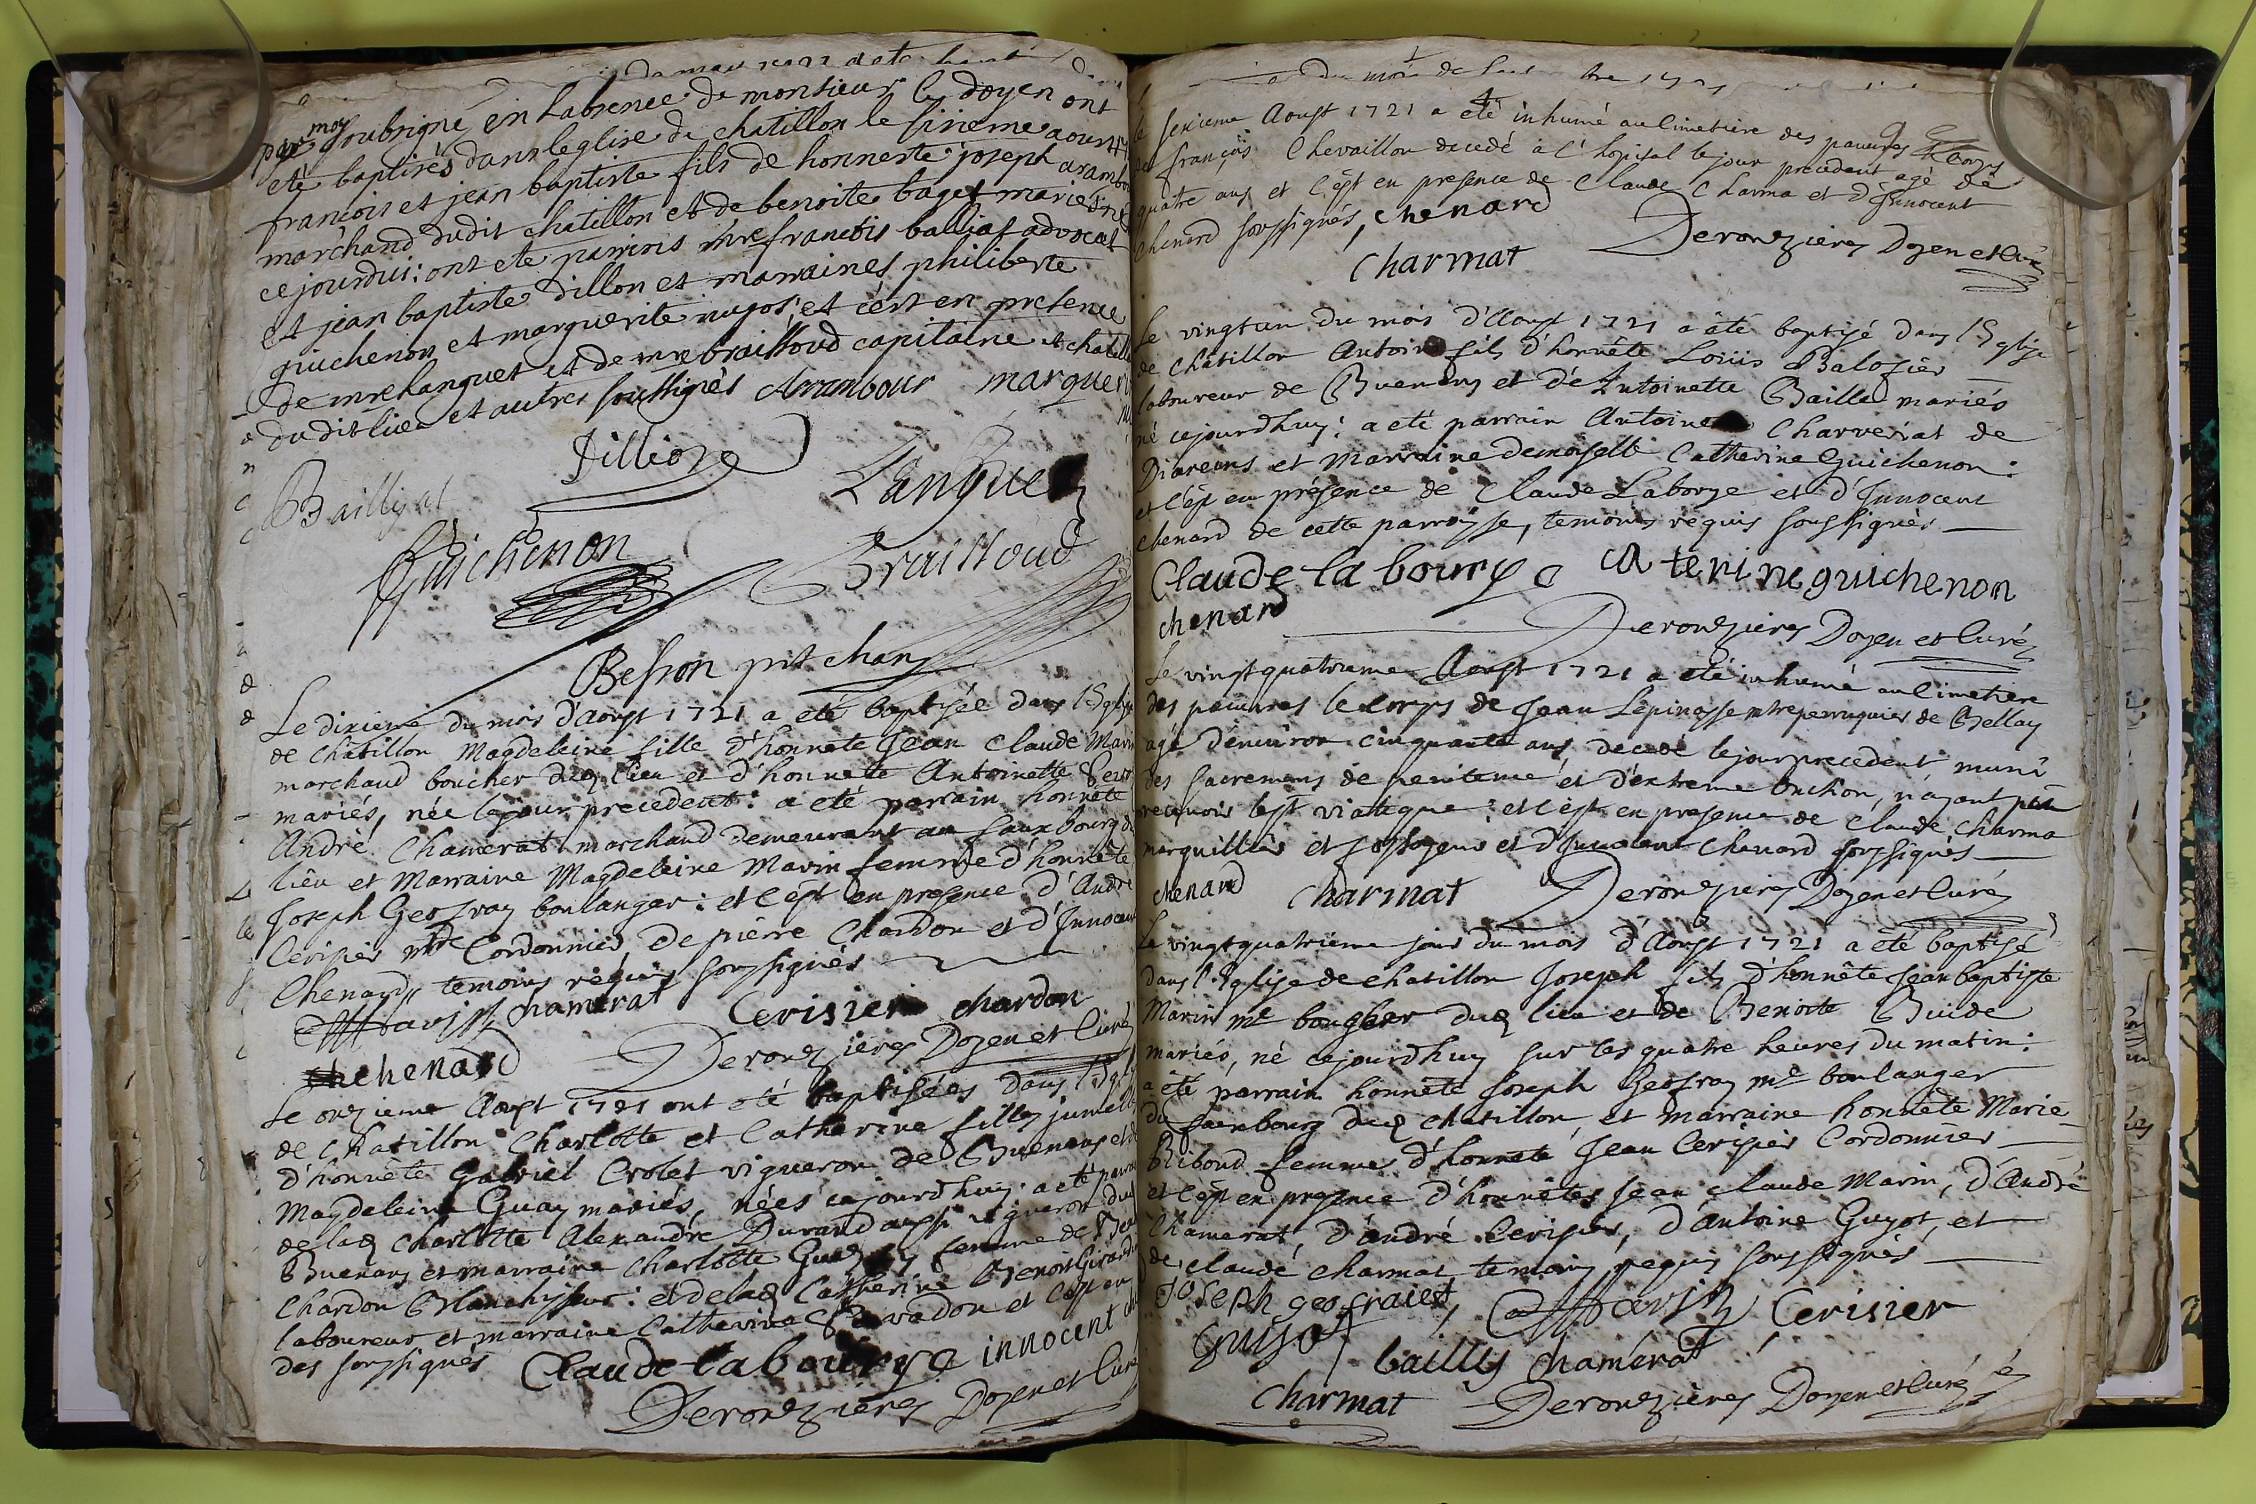 par moy soubsigné en labsence de monsieur le doyen ont
eté baptisés dans leglise de chatillon le sixieme aoust
francois et jean baptiste fils de honneste joseph arambour
marchand dudit chatillon et de benoite baget mariés
cejourdui: ont eté parrins mre francois balliat advocat
et jean baptiste dillon et marraines philiberte
guichenon et marguerite nugos, et cest en presence
de mre languet et de mre braissoud capitaine et
du dit lieu et autres soussignés Arambour
Dillion
Baillyat Languet
Guichenon Braissoud
Besson
Le dixieme du mois d'Aoust 1721 a eté baptisée dans l'Eglise
de Châtillon Magdeleine fille d'honnête Jean Claude Marin
marchand boucher dud lieu et d'honnete Antoinette
mariés, née le jour precedent: a eté parrain honnête
André Chamerat marchand demeurant au fauxbourg
lieu et Marraine Magdeleine Marin femme d'honnête
Joseph Geofray boulanger: et c'est en presence d'André
Cerisier mtre Cordonnier de pierre Chardon et d'Innocent
Chenard temoins requis soussignés
Marin chamerat Cerisier chardon
chenard Deronzieres Doyen et Curé
Le onzieme Aoust 1721 ont eté baptisées dans l'Eglise
de Chatillon Charlotte et Catherine filles jumelles
d'honnête Gabriel Crolet vigneron de Buenans et de
Magdeleine Guay mariés, nées cejourd'huy: a eté parrain
de lad Charlotte Alexandre Durand aussi vigneron dud
Buenans et marraine Charlotte femme de
Chardon Blanchisseur: et de lad Catherine Benoit Girardin
laboureur et marraine Catherine et c'est en
des soussignés Claude labourye innocent
Deronzieres Doyen et Curé
le seizieme Aoust 1721 a eté inhumé au Cimetiere des pauvres le Corps
de françois Chevaillon decedé à l'hôpital le jour precedent agé de
quatre ans et c'est en presence de Claude Charma et d'Innocent
Chenard soussignés, chenard
charmat Deronzieres Doyen et Curé
Le vingt un du mois d'Aoust 1721 a été baptisé dans l'Eglise
de Châtillon Antoine fils d'honnête Loüis Balosier
laboureur de Buenans et d'Antoinette Baille mariés
né cejourdhuy: a eté parrain Antoine Charveriat de
et Marraine demoiselle Catherine Guichenon:
et c'est en présence de Claude Laborye et d'Innocent
Chenard de cette parroisse, temoins requis soussignés
Claude la bourye Caterine guichenon
chenard
Deronzieres Doyen et Curé
Le vingtquatrieme Aoust 1721 a eté inhumé au Cimetiere
des pauvres le corps de Jean Lepinasse mtre perruquier de Bellay
agé d'environ cinquante ans decedé le jour precedent muni
des sacremens de penitence et d'extreme onction, n'ayant peu
recevoir le st viatique: et c'est en presence de Claude Charma
marguillier et fossoyeur et d'Innocent Chenard soussignés
chenard charmat Deronzieres Doyen et Curé
Le vingtquatrieme jour du mois d'Aoust 1721 a été baptisé
dans l'Eglise de chatillon Joseph fils d'honnête Jean baptiste
Marin me boucher dud lieu et de Benoite Buide
mariés, né cejourdhuy sur les quatre heures du matin:
a été parrain honnête Joseph Geofray me boulanger
du fauxbourg dud chatillon, et marraine honnete Marie
Riboud femme d'honnete Jean Cerisier Cordonnier
et c'est en presence d'honnêtes Jean Claude Marin, d'André
Chamerat, d'andré Cerisier, d'Antoine Guyot, et
de Claude Charmat temoins requis soussignés
Joseph geofraiest, Marin Cerisier
Guyot bailly chamérat
charmat Deronzieres Doyen et Curé